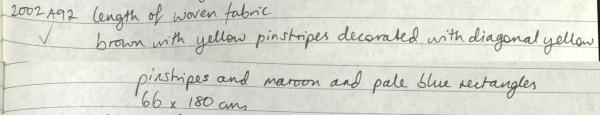 2002 A92 length of woven fabric
brown with yellow pinstripes decorated with diagonal yellow
pinstripes and maroon and pale blue rectangles
66 x 180 cms